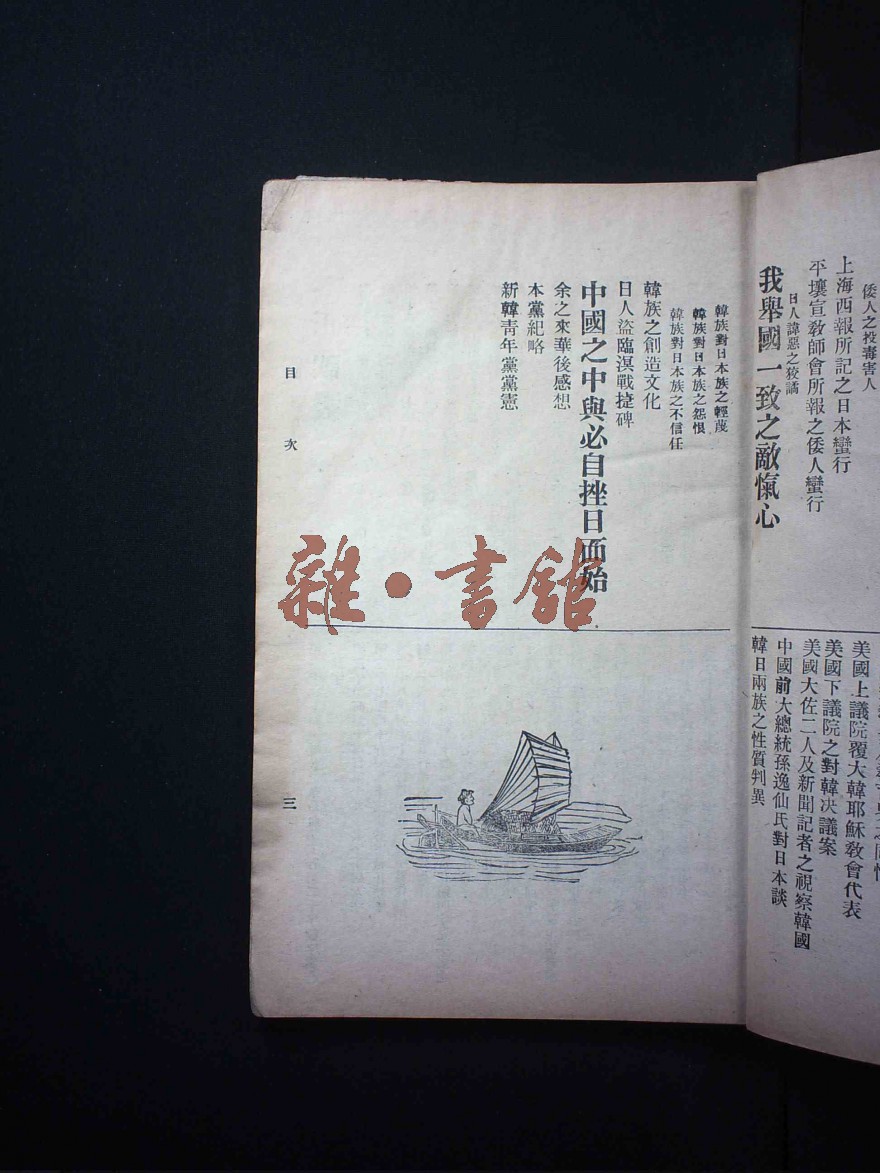 倭人之投毒害人
上海西報所記之日本蠻行
平壤宣敎師會所報之倭人蠻行
日人諱惡之狡譎
我舉國一致之敵愾心
美國上議院覆大韓耶穌敎會代表
美國下議院之對韓決議案
美國大佐二人及新聞記者之視察韓國
中國前大總統孫逸仙氏對日本談
韓日兩族之性質判異
韓族對日本族之輕蔑
韓族對日本族之怨恨
韓族對日本族之不信任
韓族之創造文化
日人盜臨溟戰捷碑
中國之中興必自挫日而始
余之來華後感想
本黨紀略
新韓靑年黨黨憲
目次
三
雜·書館